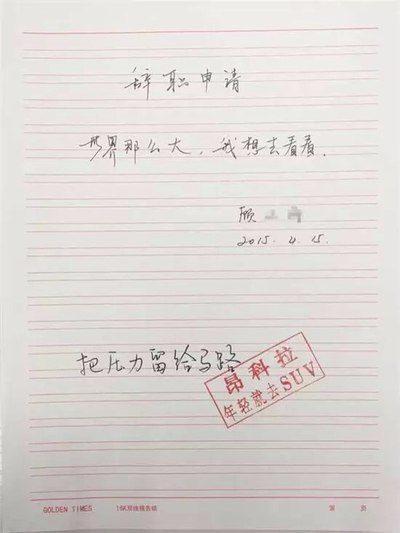 辞职申请
世界那么大，我想去看看.
顾
2015.4.15.
把压力留给马路
昂科拉
年轻就去SUV
GOLDEN TIMES 16K双线报告纸
第 页